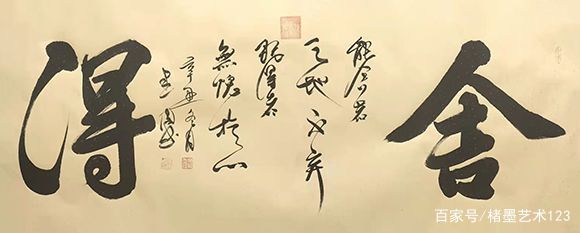 舍
能舍者
天地不弃
得者
無愧於心
辛丑冬月
得
百家号/楮墨艺术123